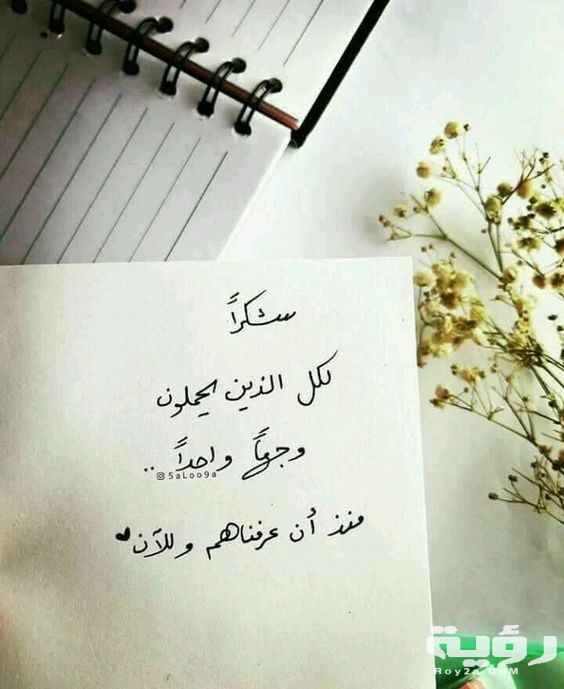 شكراً
لكل الذين يحملون
وجهاً واحداً ..
5aLoo9a
منذ أن عرفناهم وللآن ♥
رؤية
Roy2a.CoM